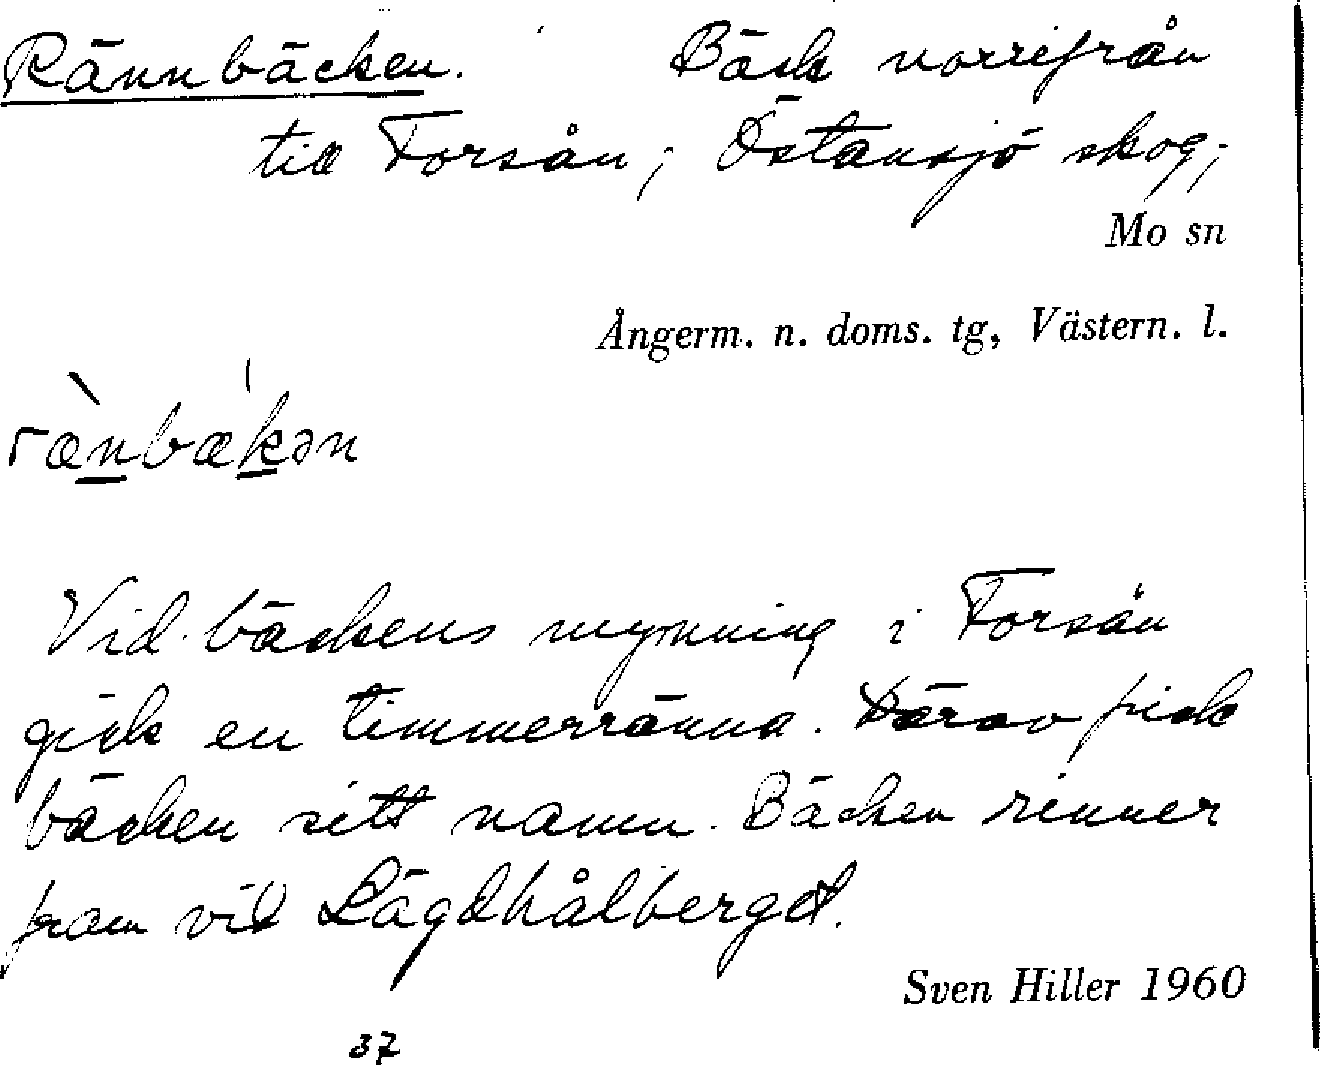 Rännbäcken. Bäck norrifrån
till Forsån; Östansjö skog;
Mo sn
Ångerm. n. doms. tg, Västern. l.
ræ̀nbækən
Vid bäckens mynning i Forsån
gick en timmerränna. Därav fick
bäcken sitt namn. Bäcken rinner
fram vid Lägdhålberget.
Sven Hiller 1960
37